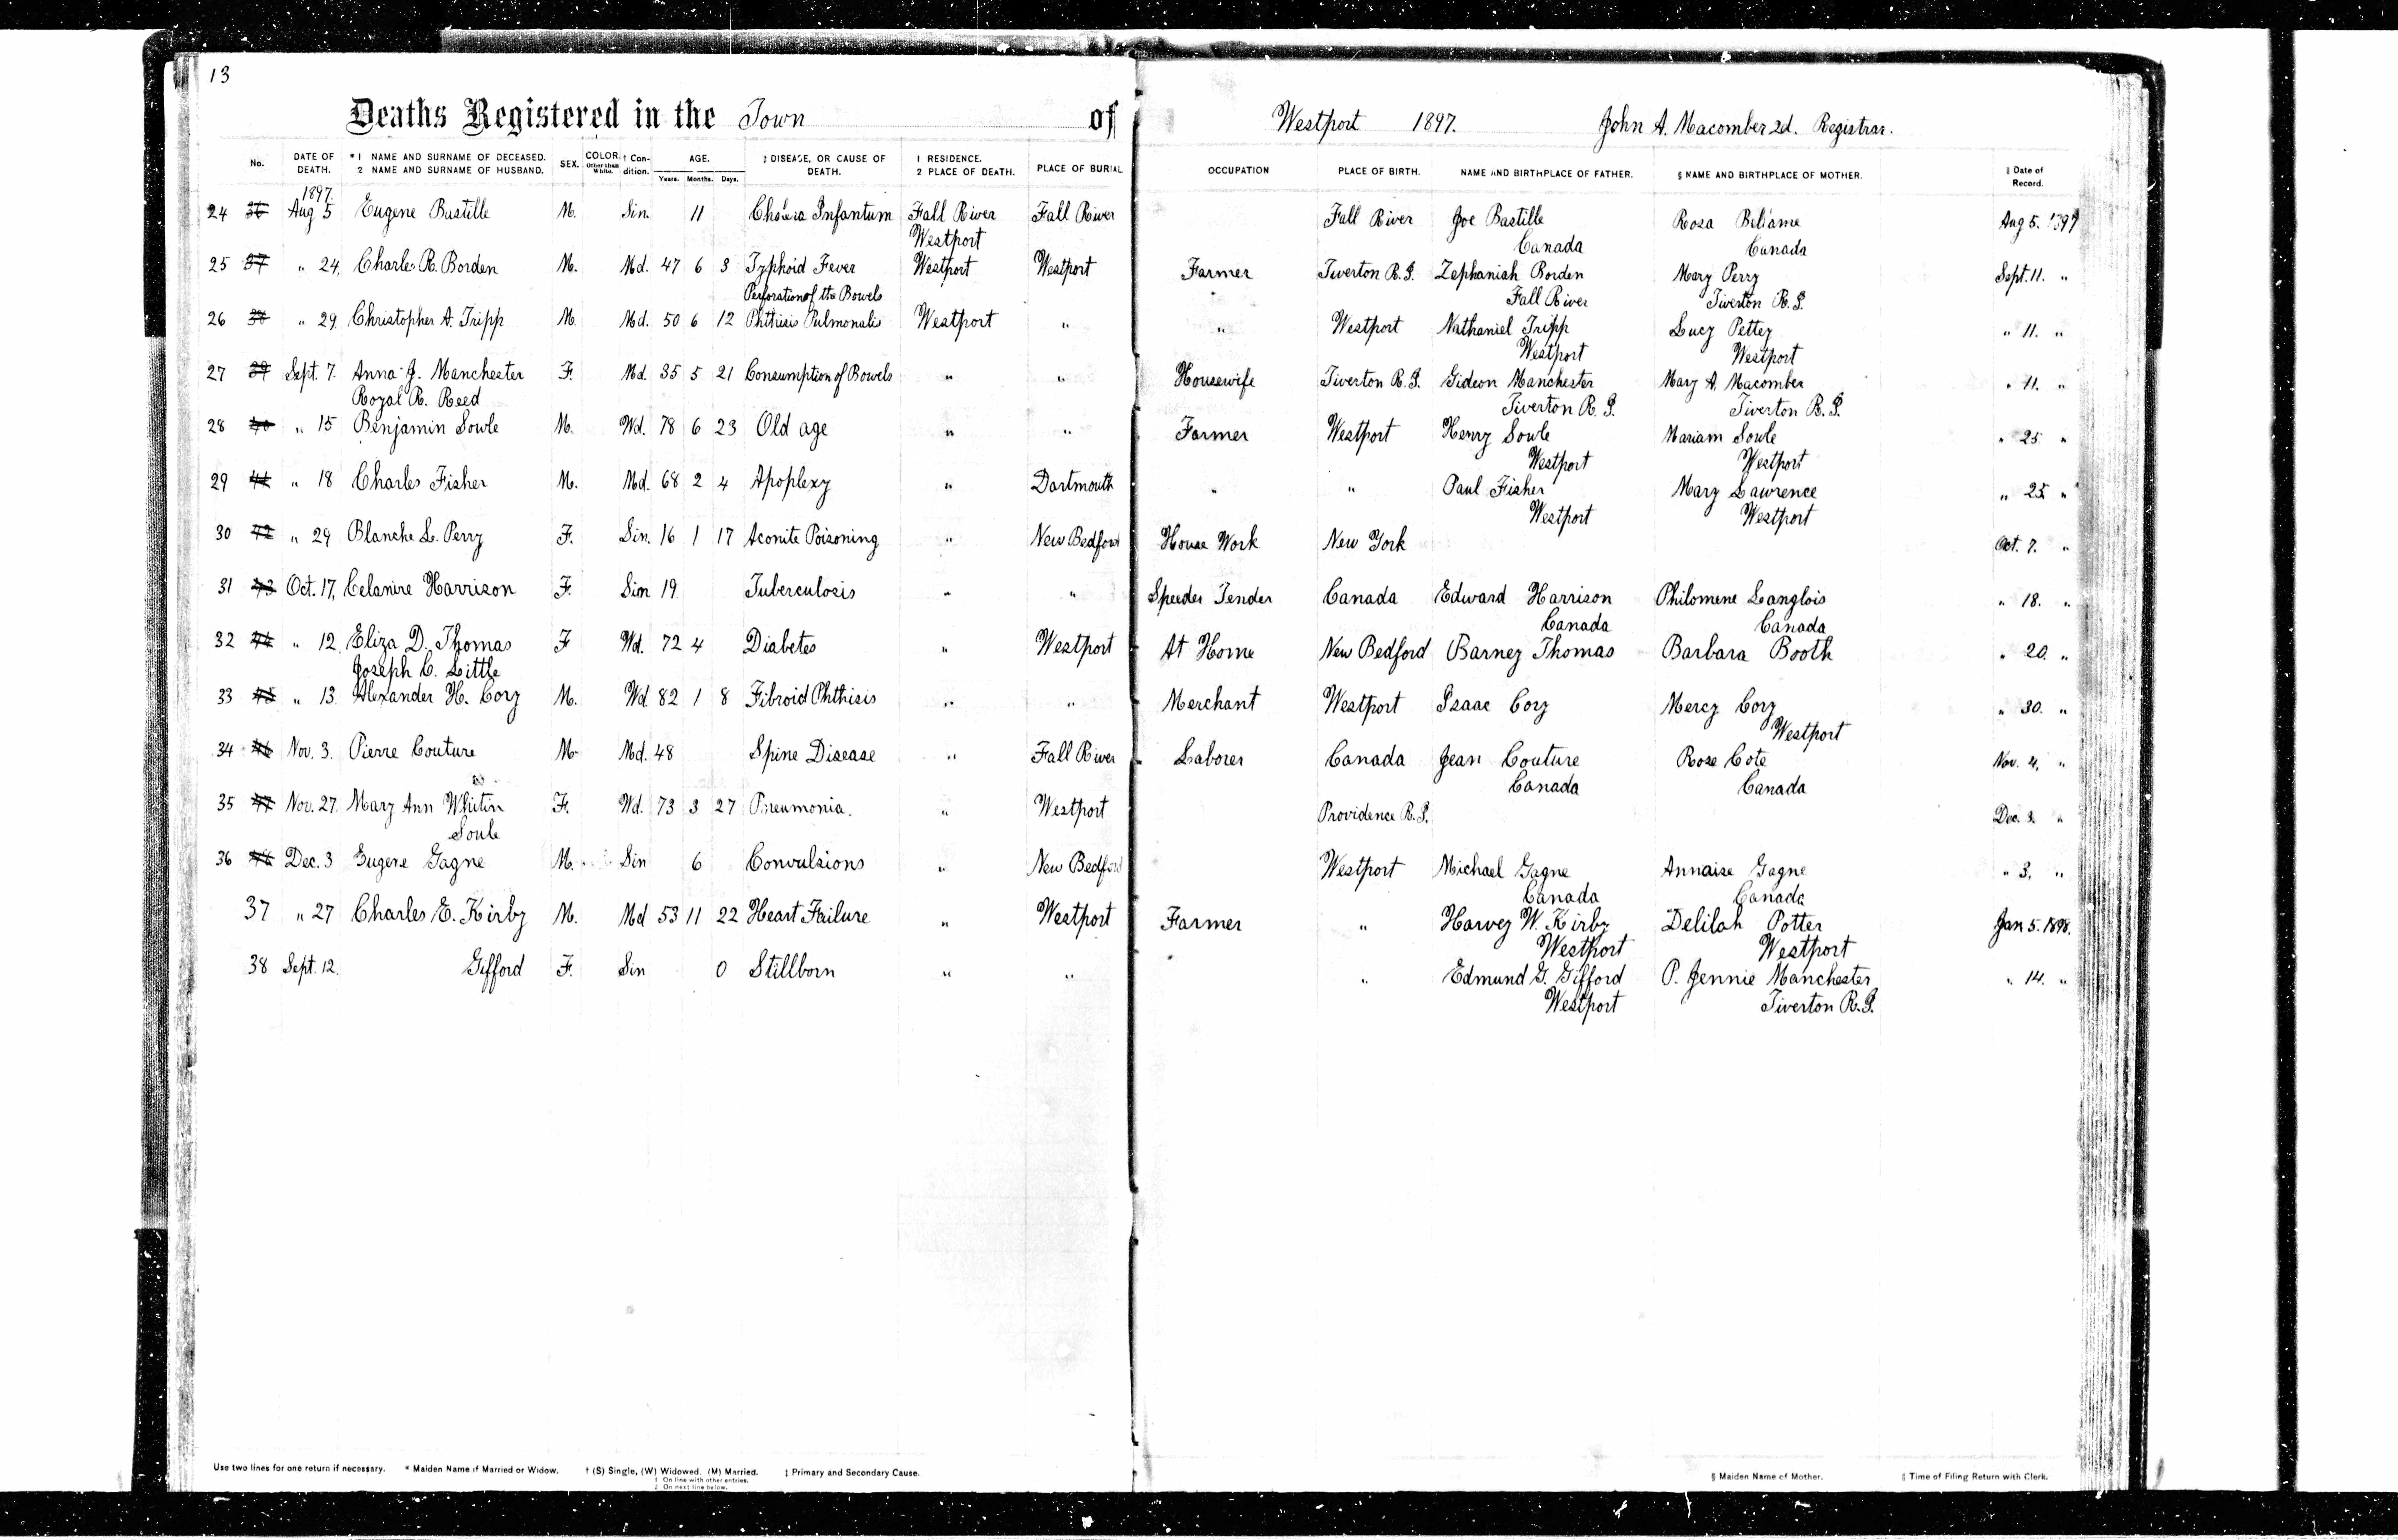 13
Deaths Registered in the Town of Westport 1897. John A. Macomber 2d. Registrar.
No. DATE OF DEATH. * 1 NAME AND SURNAME OF DECEASED. 2 NAME AND SURNAME OF HUSBAND. SEX. COLOR. Other than White. † Condition. AGE. Years. Months. Days. ‡ DISEASE, OR CAUSE OF DEATH. 1 RESIDENCE. 2 PLACE OF DEATH. PLACE OF BURIAL OCCUPATION PLACE OF BIRTH. NAME AND BIRTHPLACE OF FATHER. § NAME AND BIRTHPLACE OF MOTHER. ‖ Date of Record.
1897.
24 36 Aug 5 Eugene Bastille M. Sin. 11 Cholera Infantum Fall River Fall River Fall River Joe Bastille Rosa Beliame Aug 5. 1897
Westport Canada Canada
25 37 " 24, Charles R. Borden M. Md. 47 6 3 Typhoid Fever Westport Westport Farmer Tiverton R.I. Zephaniah Borden Mary Perry Sept. 11. "
Perforation of the Bowels Fall River Tiverton R.I.
26 38 " 29 Christopher A. Tripp M. Md. 50 6 12 Phthisis Pulmonalis Westport " " Westport Nathaniel Tripp Lucy Pettey " 11. "
Westport Westport
27 39 Sept. 7. Anna J. Manchester F. Md. 35 5 21 Consumption of Bowels " " Housewife Tiverton R.I. Gideon Manchester Mary A. Macomber " 11. "
Royal R. Reed Tiverton R.I. Tiverton R.I.
28 40 " 15 Benjamin Sowle M. Wd. 78 6 23 Old age " " Farmer Westport Henry Sowle Mariam Sowle " 25 "
Westport Westport
29 41 " 18 Charles Fisher M. Md. 68 2 4 Apoplexy " Dartmouth " " Paul Fisher Mary Lawrence " 25. "
Westport Westport
30 42 " 29 Blanche L. Perry F. Sin. 16 1 17 Aconite Poisoning " New Bedford House Work New York Oct. 7. "
31 43 Oct. 17, Celanire Harrison F. Sin 19 Tuberculosis " " Speeder Tender Canada Edward Harrison Philomene Langlois " 18. "
Canada Canada
32 44 " 12 Eliza D. Thomas F Wd. 72 4 Diabetes " Westport At Home New Bedford Barney Thomas Barbara Booth " 20. "
Joseph C. Little
33 45 " 13. Alexander H. Cory M. Wd 82 1 8 Fibroid Phthisis " " Merchant Westport Isaac Cory Mercy Cory " 30. "
Westport
34 46 Nov. 3. Pierre Couture M. Md. 48 Spine Disease " Fall River Laborer Canada Jean Couture Rose Cote Nov. 4, "
Canada Canada
35 47 Nov. 27. Mary Ann Whitin F. Wd. 73 3 27 Pneumonia. " Westport Providence R.I. Dec. 3. "
Soule
36 48 Dec. 3 Eugene Gagne M. Sin 6 Convulsions " New Bedford Westport Michael Gagne Annaise Gagne " 3, "
Canada Canada
37 " 27 Charles E. Kirby M. Md 53 11 22 Heart Failure " Westport Farmer " Harvey W. Kirby Delilah Potter Jan 5. 1898.
Westport Westport
38 Sept. 12. Gifford F. Sin 0 Stillborn " " " Edmund G. Gifford P. Jennie Manchester " 14. "
Westport Tiverton R.I.
Use two lines for one return if necessary. * Maiden Name if Married or Widow. † (S) Single, (W) Widowed, (M) Married. ‡ Primary and Secondary Cause. § Maiden Name of Mother. ‖ Time of Filing Return with Clerk.
1 On line with other entries.
2 On next line below.